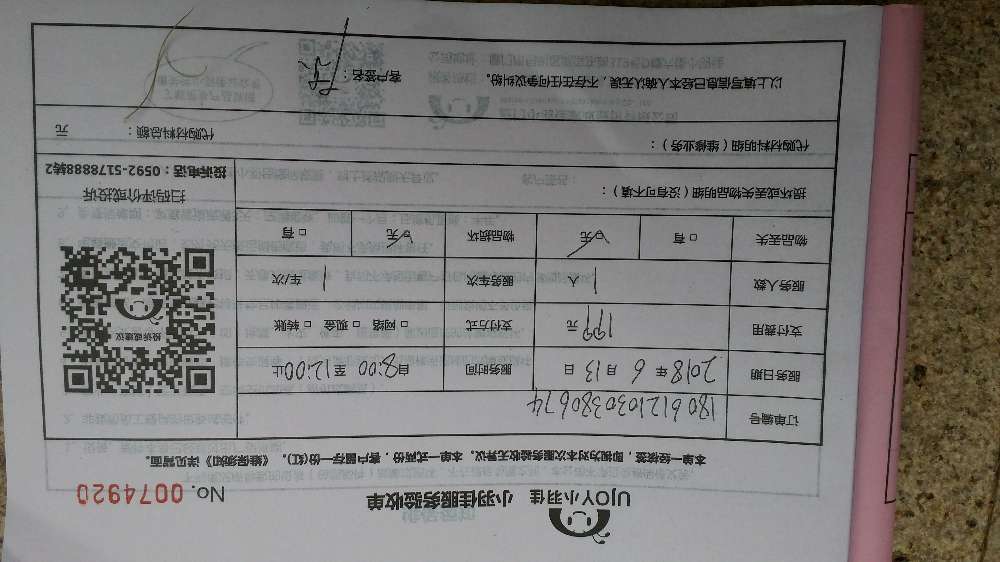 UJOY小羽佳 小羽佳服务验收单 No. 0074920
本单一经核签，即视为对本次服务验收无异议。本单一式两份，客户留存一份(红)。《维保须知》详见背面。
订单编号 1806121030380674
服务日期 2018 年 6 月 13 日 服务时间 自 8:00 至 12:00 止
支付费用 199 元 支付方式 □ 网络 □ 现金 □ 转账
服务人数 1 人 服务车次 1 车/次
物品丢失 □ 有 ☑ 无 物品损坏 □ 有 ☑ 无
投诉或建议
扫码评价或投诉
投诉电话：0592-5178888转2
损坏或丢失物品明细（没有可不填）：
代购材料明细（维修业务）： 代购材料总额： 元
以上填写信息已经本人确认无误，不存在任何争议纠纷。 客户签名：